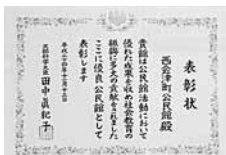 表彰状
西会津町公民館殿
貴館は公民館活動において
優れた成果を収め社会教育の
振興に多大の貢献をされました
ここに優良公民館として
表彰します
平成二十四年十二月十九日
文部科学大臣 田中眞紀子